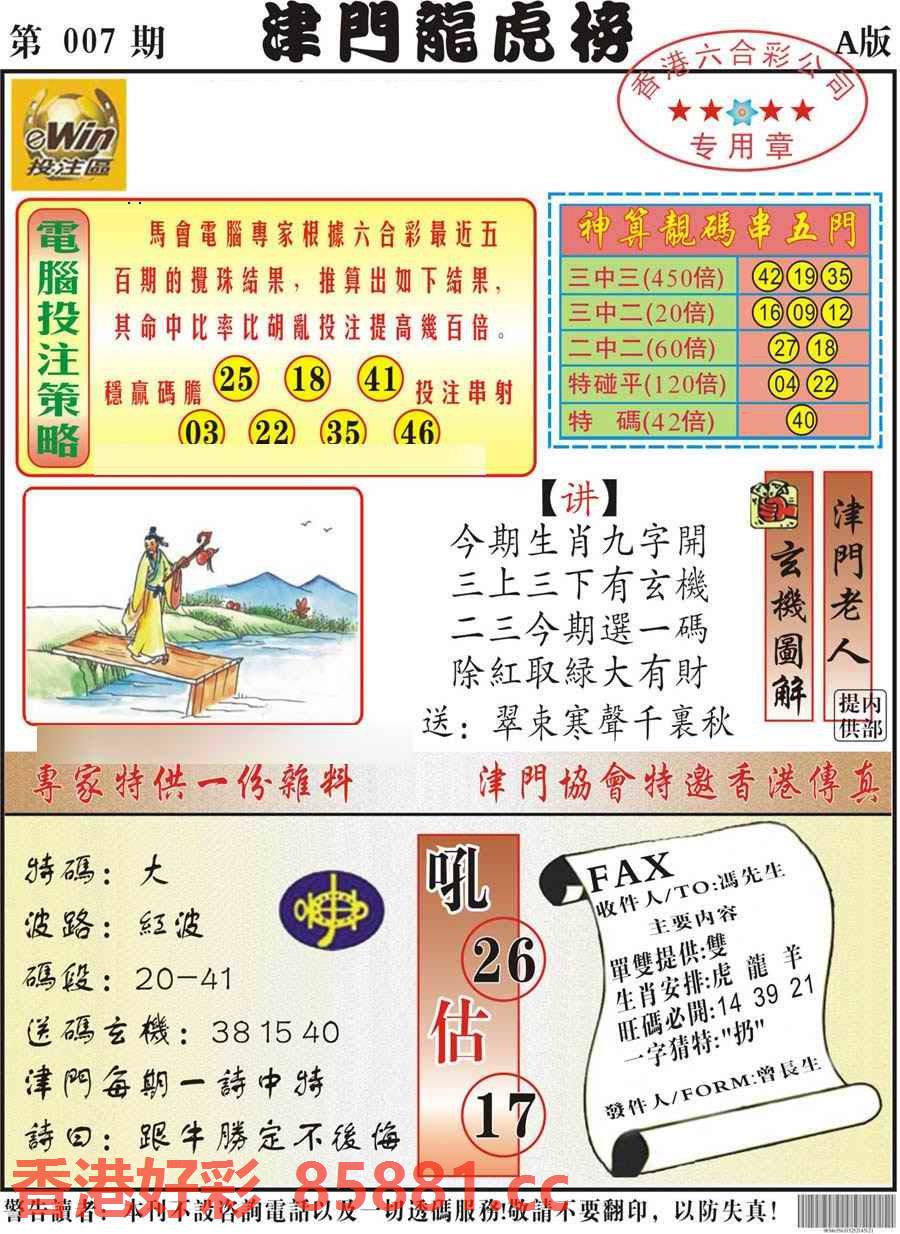 第 007 期
津門龍虎榜
A版
香港六合彩公司
专用章
eWin
投注區
電腦投注策略
馬會電腦專家根據六合彩最近五
百期的攪珠結果，推算出如下結果，
其命中比率比胡亂投注提高幾百倍。
穩贏碼膽 25 18 41 投注串射
03 22 35 46
神算靚碼串五門
三中三(450倍) 42 19 35
三中二(20倍) 16 09 12
二中二(60倍) 27 18
特碰平(120倍) 04 22
特 碼(42倍) 40
【讲】
今期生肖九字開
三上三下有玄機
二三今期選一碼
除紅取緑大有財
送：翠束寒聲千裏秋
玄機圖解
津門老人
内部提供
專家特供一份雜料
津門協會特邀香港傳真
特碼：大
波路：紅波
碼段：20-41
送碼玄機：38 15 40
津門每期一詩中特
詩曰：跟牛勝定不後悔
吼
26
估
17
FAX
收件人/TO:馮先生
主要内容
單雙提供:雙
生肖安排:虎 龍 羊
旺碼必開:14 39 21
一字猜特:"扔"
發件人/FORM:曾長生
香港好彩 85881.cc
警告讀者：本刊不設咨詢電話以及一切透碼服務!敬請不要翻印，以防失真!